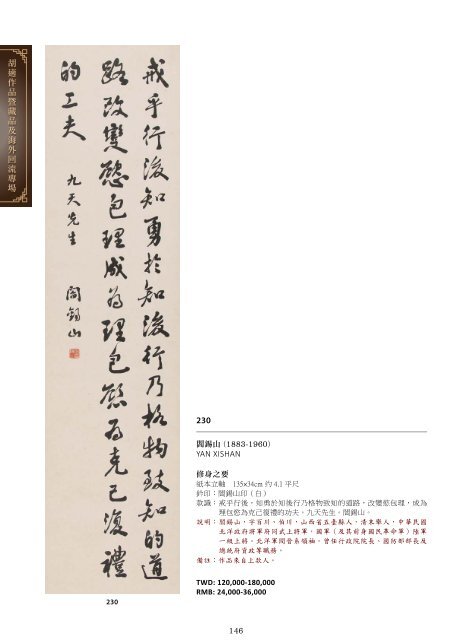 胡適作品暨藏品及海外回流專場
戒乎行後知勇於知後行乃格物致知的道
路改變慾包理成為理包慾為克己復禮
的工夫 九天先生 閻錫山
230
230
閻錫山 (1883-1960)
YAN XISHAN
修身之要
紙本立軸 135×34cm 約 4.1 平尺
鈐印：閻錫山印（白）
款識：戒乎行後，知勇於知後行乃格物致知的道路，改變慾包理，成為
理包慾為克己復禮的功夫。九天先生。閻錫山。
說明：閻錫山，字百川、伯川，山西省五臺縣人，清末舉人，中華民國
北洋政府將軍府同武上將軍，國軍（及其前身國民革命軍）陸軍
一級上將，北洋軍閥晉系領袖。曾任行政院院長、國防部部長及
總統府資政等職務。
備註：作品來自上款人。
TWD: 120,000-180,000
RMB: 24,000-36,000
146